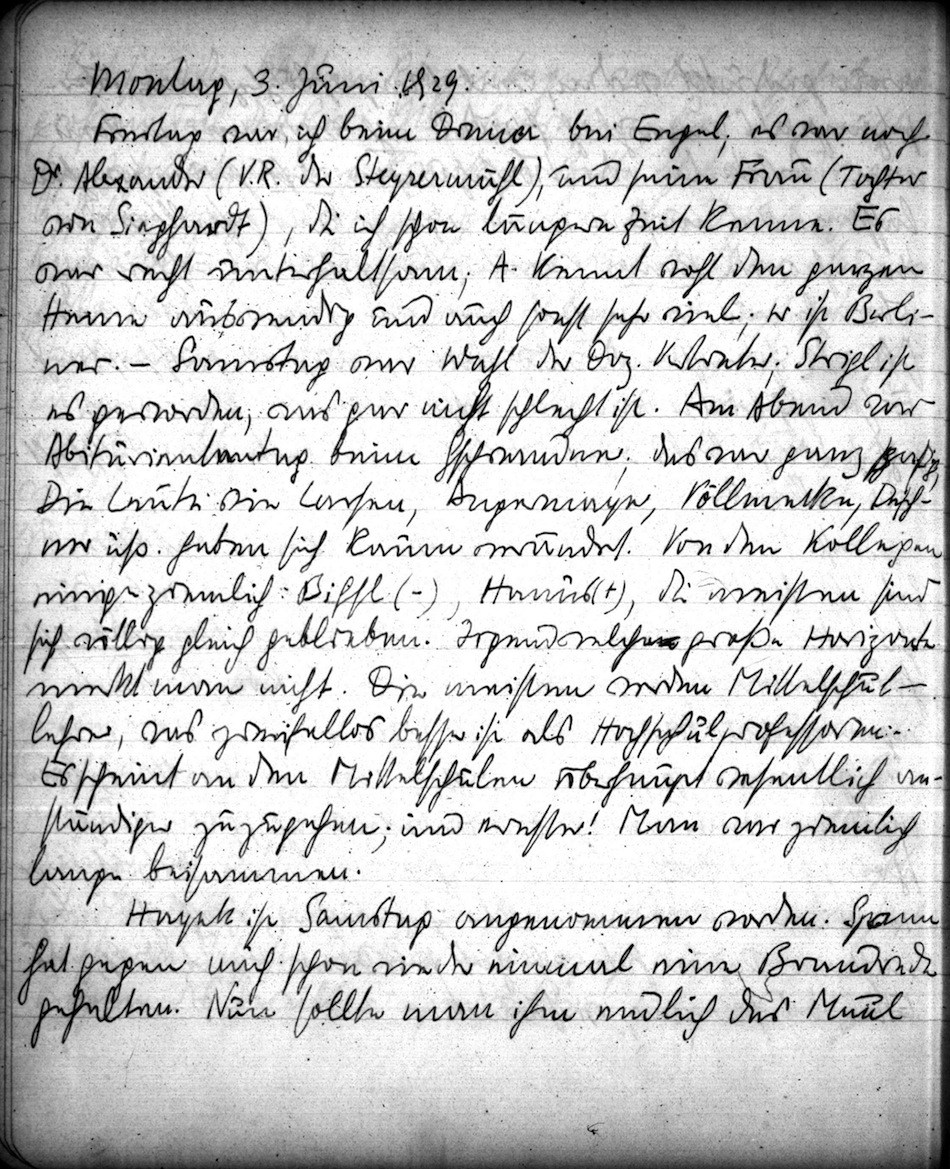 Montag, 3. Juni 1929.
Freitag war ich beim Diner bei Engel; es war noch
Dr. Alexander (V.R. der Steyrermühl), und seine Frau (Tochter
von Sieghardt), die ich schon längere Zeit kenne. Es
war recht unterhaltsam; A. kennt wohl den ganzen
Heine auswendig und auch sonst sehr viel; er ist Berli-
ner. – Samstag war Wahl der Doz. Vertreter; Strigl ist
es geworden, was gar nicht schlecht ist. Am Abend war
Abiturienten beim Gschwandner; das war ganz
Die Leute wie Larsen, Angermayer, Völlmecke,
ner usf. haben sich kaum verändert. Von den Kollegen
einige ziemlich: Bissl (–), Hanus (+), die meisten sind
sich völlig gleich geblieben. Irgendwelche große Horizonte
merkt man nicht. Die meisten werden Mittelschul-
lehrer, was zweifellos besser ist als Hochschulprofessoren.
Es scheint an den Mittelschulen überhaupt wesentlich an-
ständiger zuzugehen; und ernster! Man war ziemlich
lange beisammen.
Hayek ist Samstag angenommen worden. Spann
hat gegen mich schon wieder einmal eine Brandrede
gehalten. Nun sollte man ihm endlich das Maul